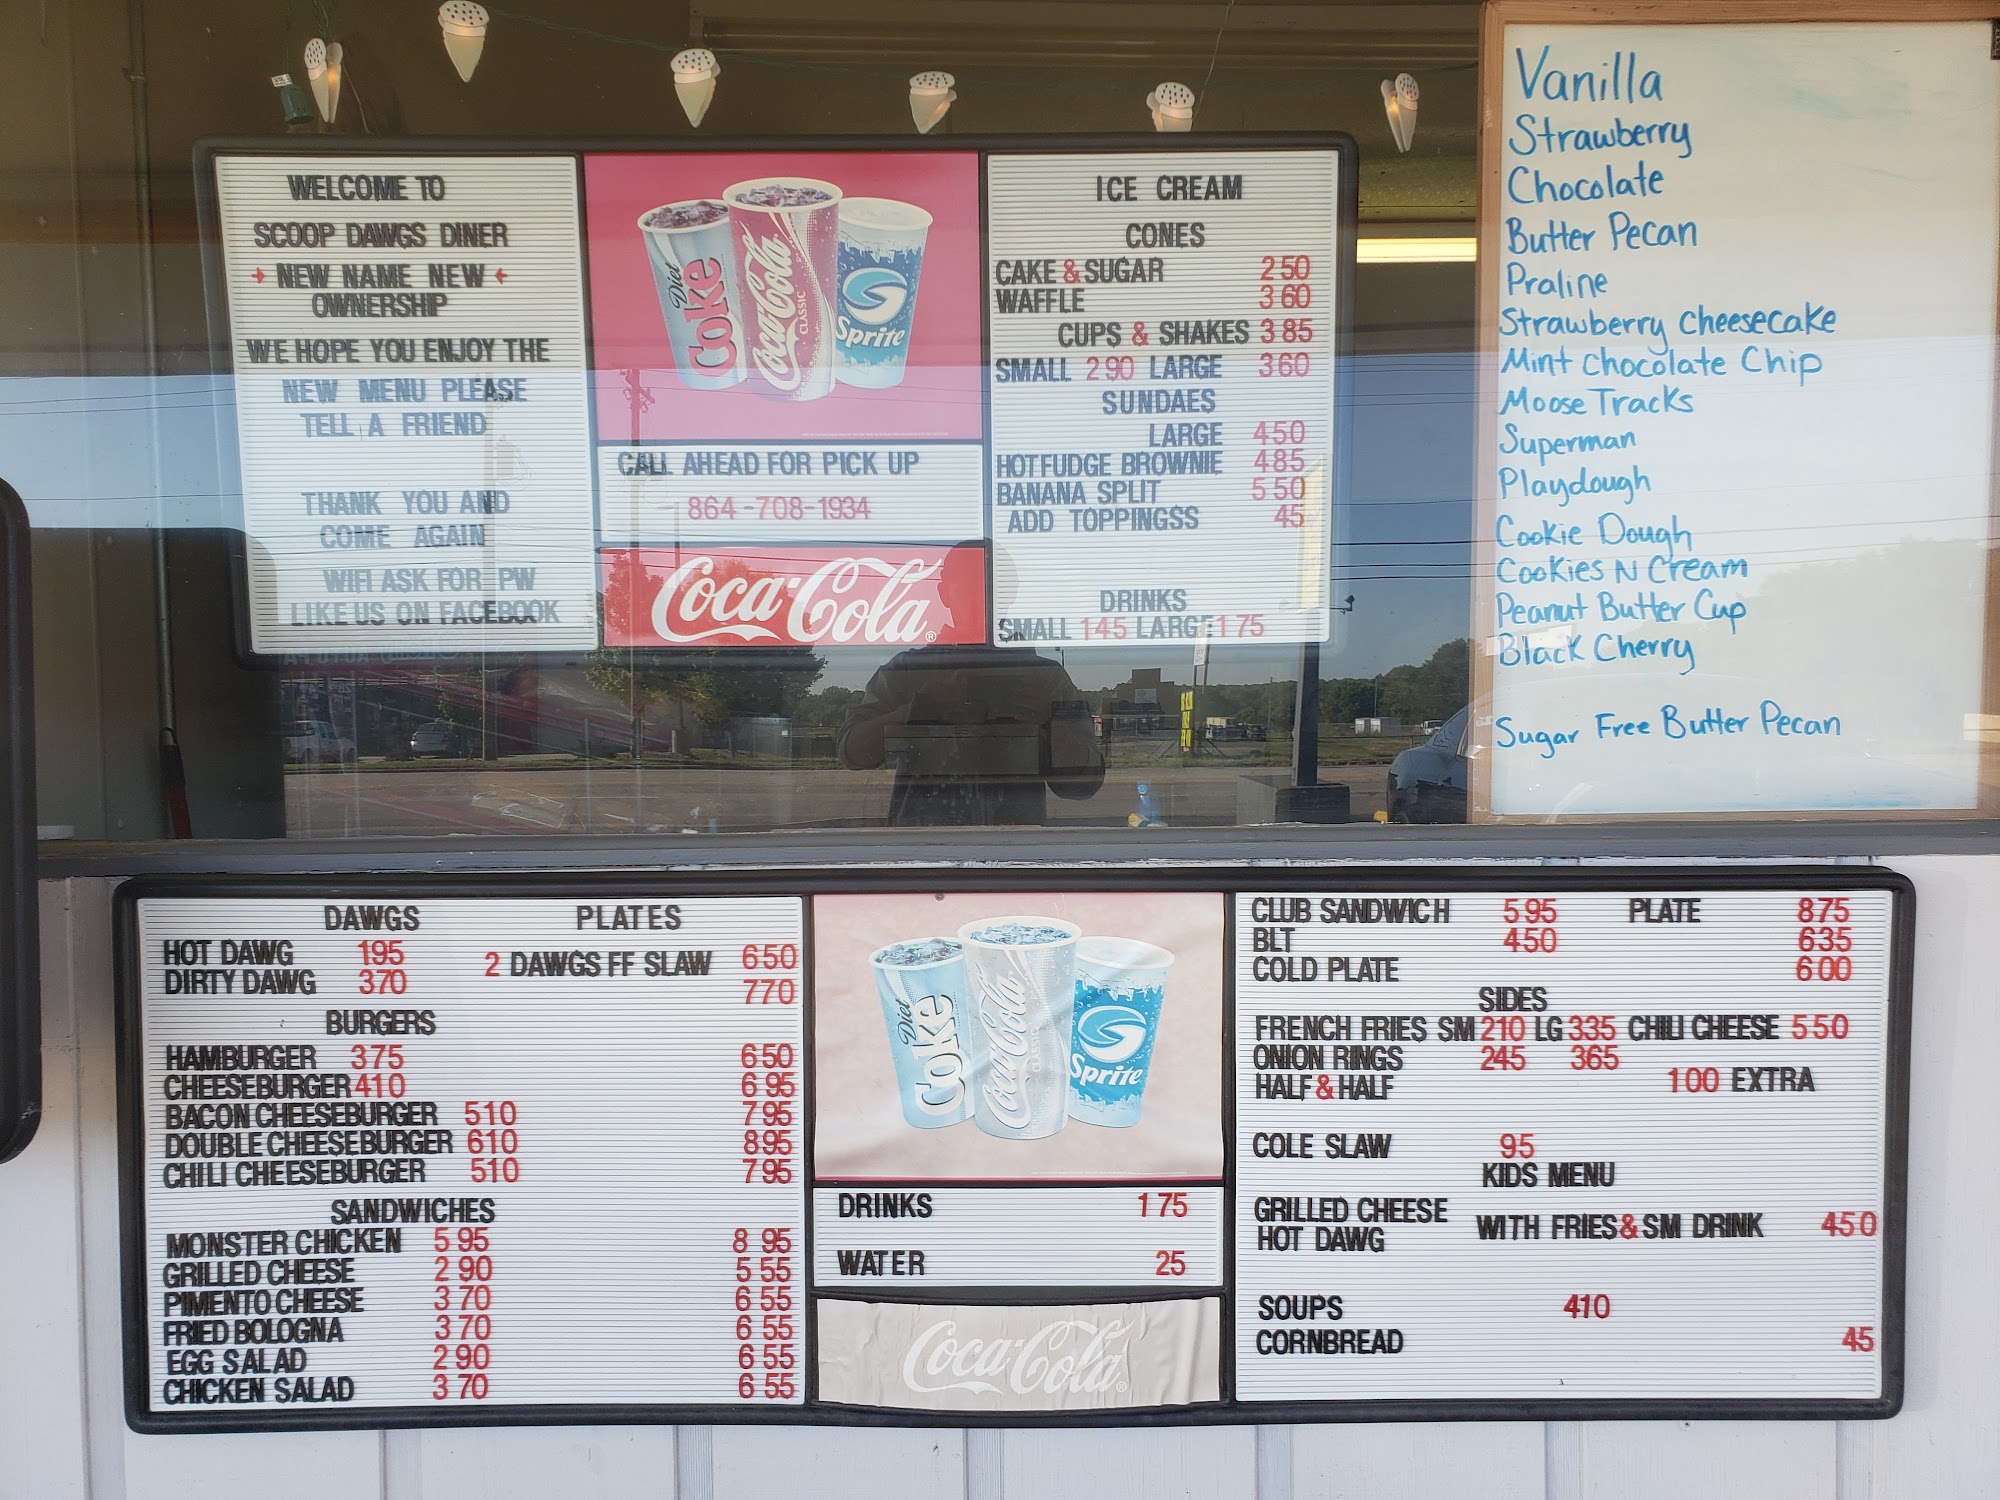 WELCOME TO
SCOOP DAWGS DINER
NEW NAME NEW
OWNERSHIP
WE HOPE YOU ENJOY THE
NEW MENU PLEASE
TELL A FRIEND
THANK YOU AND
COME AGAIN
WIFI ASK FOR PW
LIKE US ON FACEBOOK
Diet Coke
Coca-Cola CLASSIC
Sprite
CALL AHEAD FOR PICK UP
864-708-1934
Coca-Cola
ICE CREAM
CONES
CAKE & SUGAR 250
WAFFLE 360
CUPS & SHAKES 385
SMALL 290 LARGE 360
SUNDAES
LARGE 450
HOT FUDGE BROWNIE 485
BANANA SPLIT 550
ADD TOPPINGSS 45
DRINKS
SMALL 145 LARGE 175
Vanilla
Strawberry
Chocolate
Butter Pecan
Praline
Strawberry Cheesecake
Mint Chocolate Chip
Moose Tracks
Superman
Playdough
Cookie Dough
Cookies N Cream
Peanut Butter Cup
Black Cherry
Sugar Free Butter Pecan
DAWGS PLATES
HOT DAWG 195 2 DAWGS FF SLAW 650
DIRTY DAWG 370 770
BURGERS
HAMBURGER 375 650
CHEESEBURGER 410 695
BACON CHEESEBURGER 510 795
DOUBLE CHEESEBURGER 610 895
CHILI CHEESEBURGER 510 795
SANDWICHES
MONSTER CHICKEN 595 895
GRILLED CHEESE 290 555
PIMENTO CHEESE 370 655
FRIED BOLOGNA 370 655
EGG SALAD 290 655
CHICKEN SALAD 370 655
Diet Coke
Coca-Cola CLASSIC
Sprite
DRINKS 175
WATER 25
Coca-Cola
CLUB SANDWICH 595 PLATE 875
BLT 450 635
COLD PLATE 600
SIDES
FRENCH FRIES SM 210 LG 335 CHILI CHEESE 550
ONION RINGS 245 365
HALF & HALF 100 EXTRA
COLE SLAW 95
KIDS MENU
GRILLED CHEESE
HOT DAWG WITH FRIES & SM DRINK 450
SOUPS 410
CORNBREAD 45